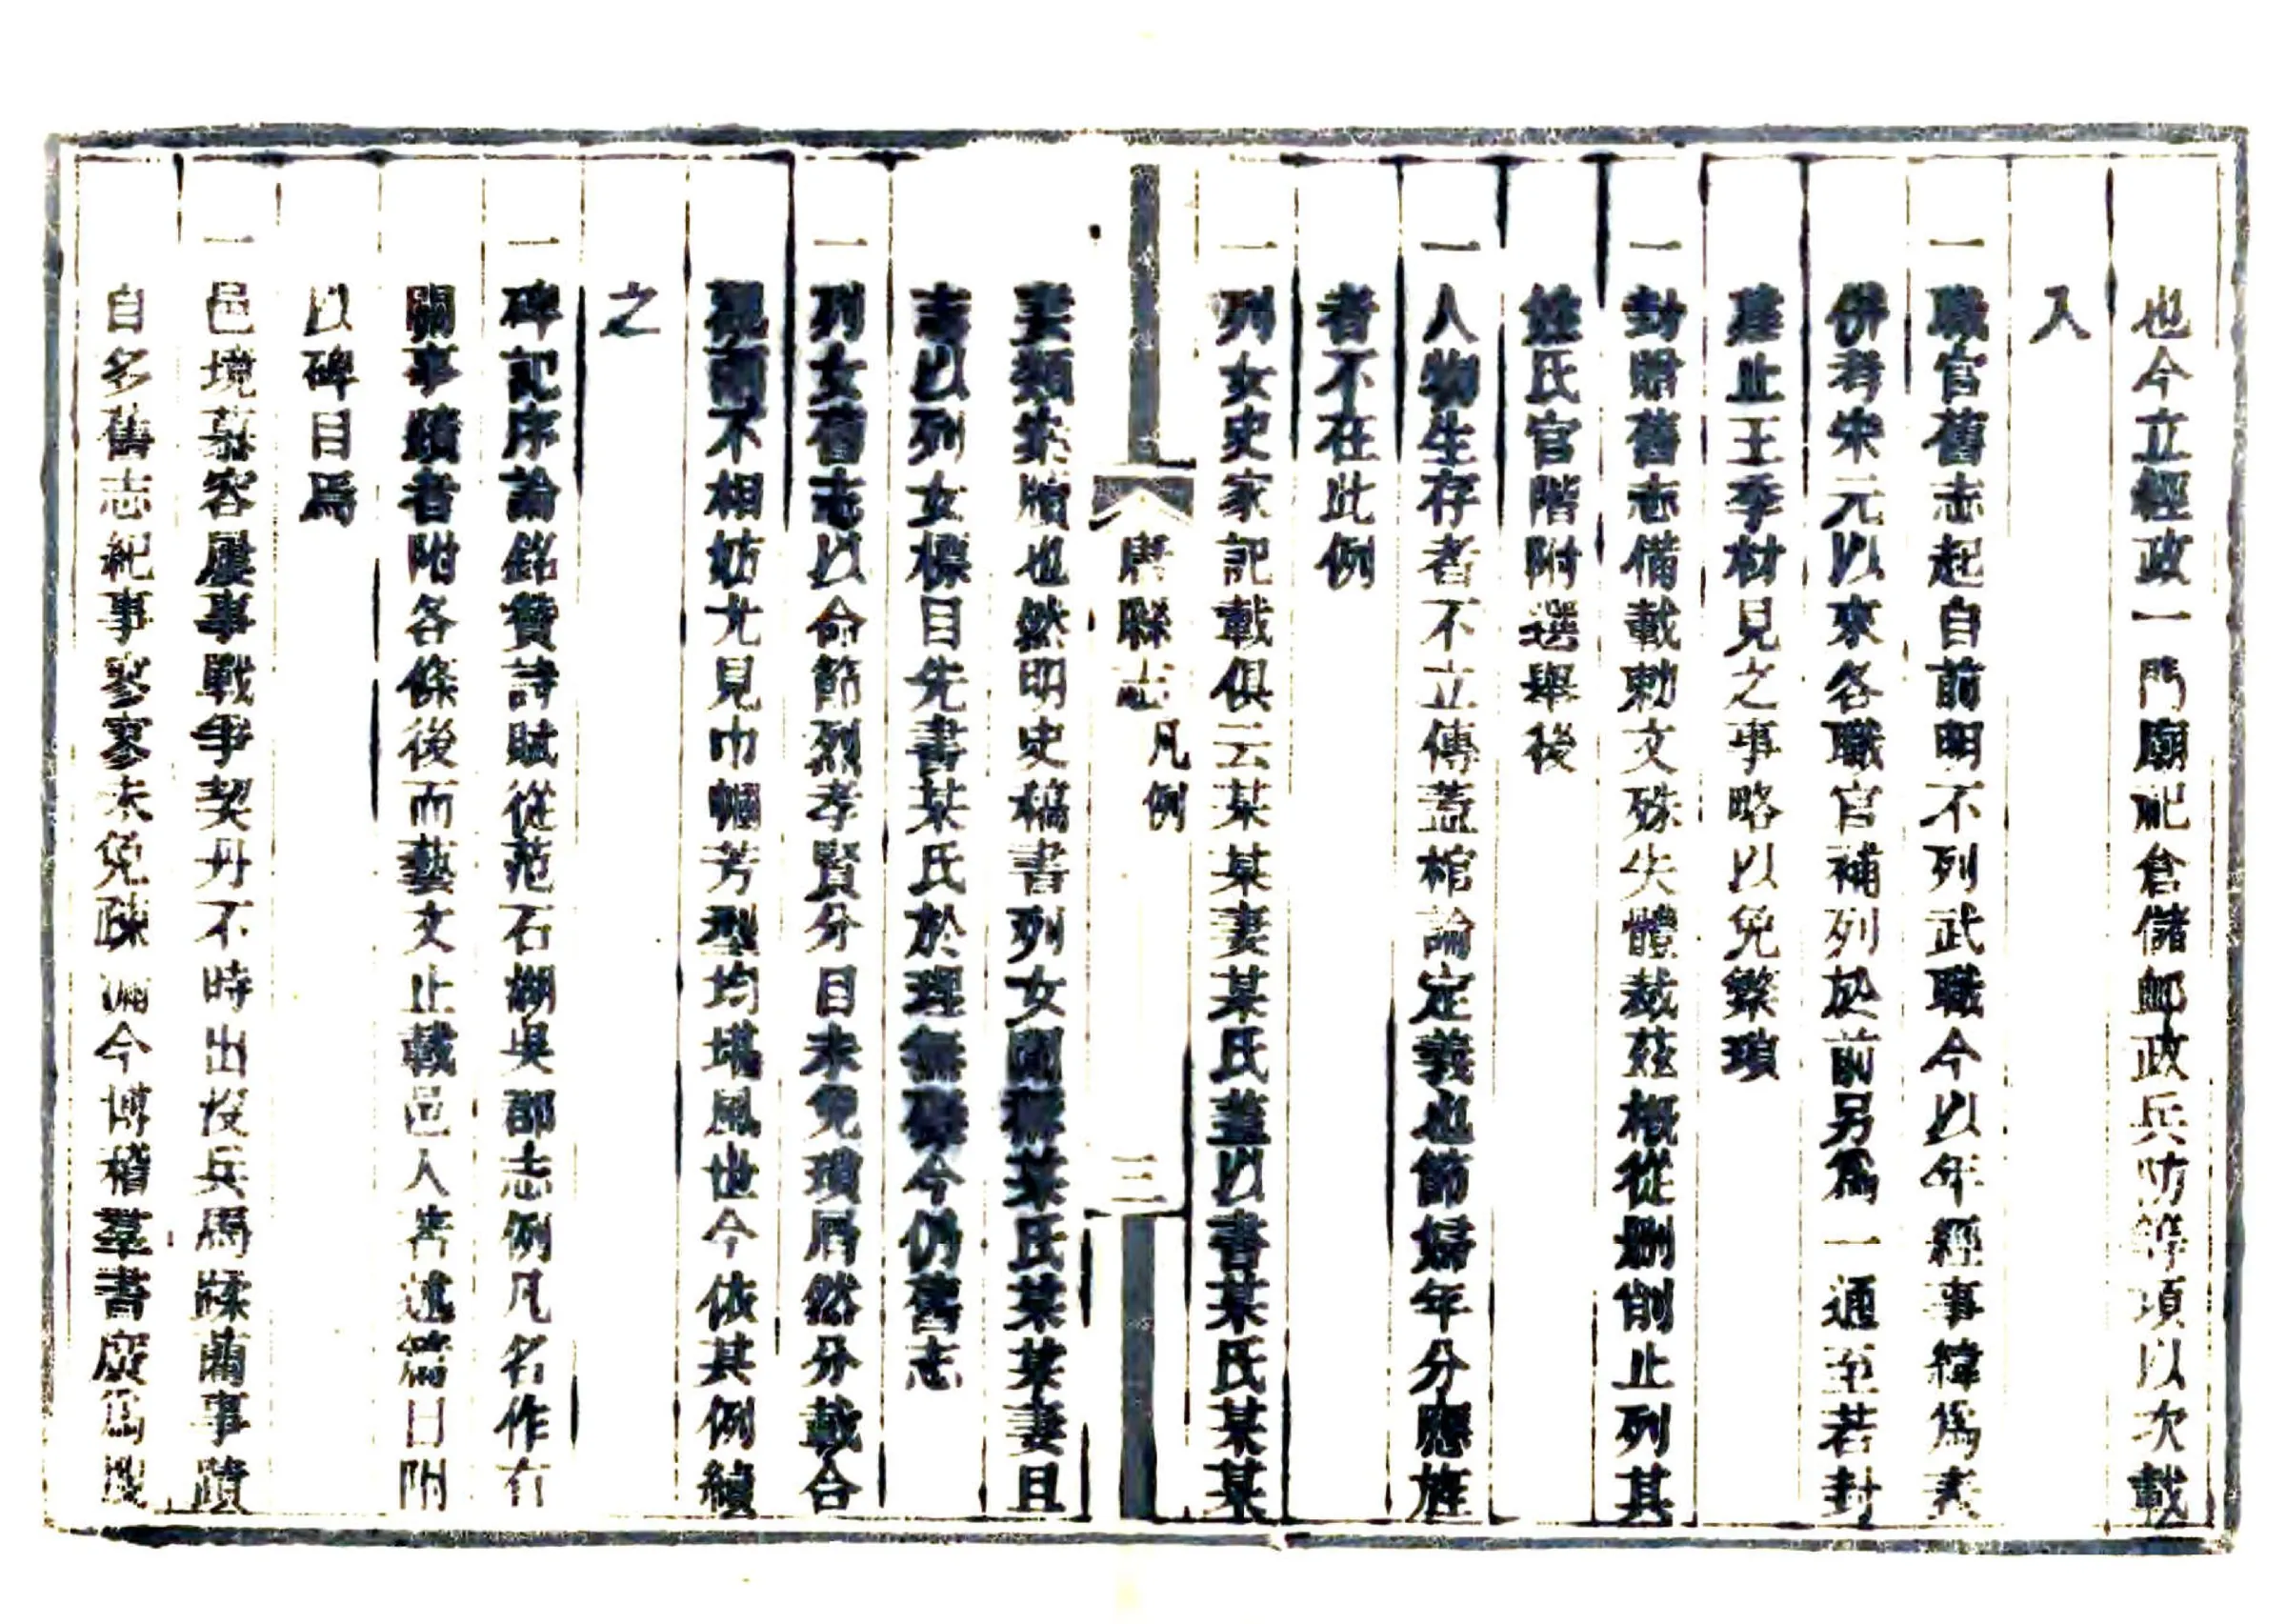 也今立經政一門廟祀倉儲郵政兵防等項以次載
入
一職官舊志起自前明不列武職今以年經事緯爲表
併考宋元以來各職官補列於前另爲一通至若封
建止王季材見之事略以免繁瑣
一封贈舊志備載勅文殊失體裁茲概從删削止列其
姓氏官階附選舉後
一人物生存者不立傳蓋棺論定義也節婦年分應旌
者不在此例
一列女史家記載俱云某某妻某氏蓋以書某氏某某
妻類案牘也然明史稿書列女間標某氏某某妻且
志以列女標目先書某氏於理無礙今仍舊志
一列女舊志以命節烈孝賢分目未免瑣屑然分載合
視兩不相妨尤見巾幗芳型均堪風世今依其例續
之
一碑記序論銘贊詩賦從范石湖吳郡志例凡名作有
關事蹟者附各條後而藝文止載邑人著述篇目附
以碑目焉
一邑境慕容屢事戰爭契丹不時出没兵馬蹂藺事蹟
自多舊志紀事寥寥未免疎漏今博稽羣書廣爲
唐縣志
凡例
三